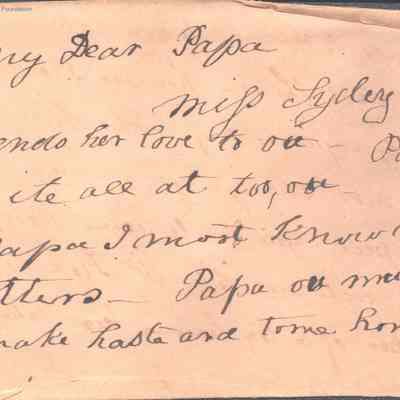 Foundation
my Dear Papa
Miss Sydey
ends her love to ou – Pa
ite all at too, ou
apa I most know
tters – Papa ou mu
make haste and tome hom